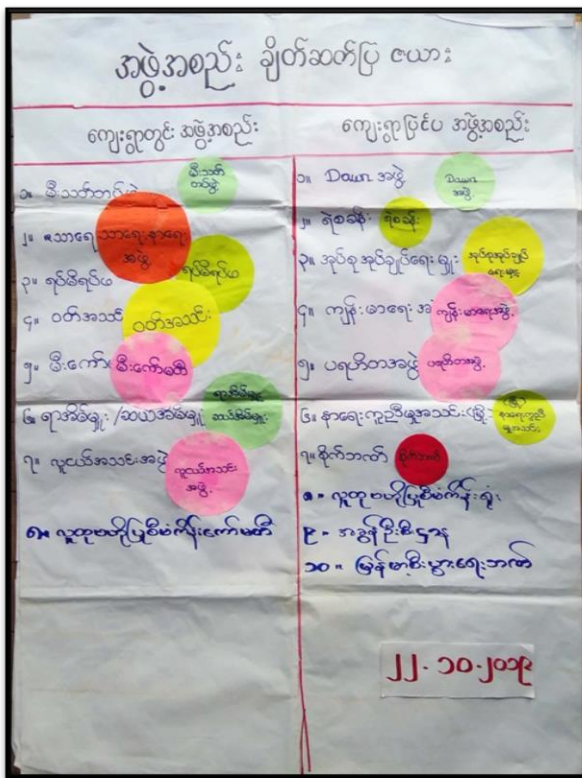 အဖွဲ့အစည်း ချိတ်ဆက်ပြ ဇယား
ကျေးရွာတွင်း အဖွဲ့အစည်း
၁။ မီးသတ်တပ်ဖွဲ့ မီးသတ်တပ်ဖွဲ့
၂။ သာရေး သာရေးနာရေးအဖွဲ့
၃။ ရပ်မိရပ်ဖ ရပ်မိရပ်ဖ
၄။ ဝတ်အသင်း ဝတ်အသင်း
၅။ မီးကော် မီးကော်မတီ
၆။ ရာအိမ်မှူး/ဆယ်အိမ်မှူး ရာအိမ်မှူး ဆယ်အိမ်မှူး
၇။ လူငယ်အသင်းအဖွဲ့ လူငယ်အသင်းအဖွဲ့
၈။ လူထုဗဟိုပြုစီမံကိန်းကော်မတီ
ကျေးရွာပြင်ပ အဖွဲ့အစည်း
၁။ Dawn အဖွဲ့ Dawn အဖွဲ့
၂။ ရဲစခန်း ရဲစခန်း
၃။ အုပ်စုအုပ်ချုပ်ရေးမှူး အုပ်စုအုပ်ချုပ်ရေးမှူး
၄။ ကျန်းမာရေး ကျန်းမာရေးအဖွဲ့
၅။ ပရဟိတအဖွဲ့ ပရဟိတအဖွဲ့
၆။ နာရေးကူညီမှုအသင်း (မြို့) နာရေးကူညီမှုအသင်း
၇။ စိုက်ဘဏ်
၈။ လူထုဗဟိုပြုစီမံကိန်းရုံး
၉။ အခွန်ဦးစီးဌာန
၁၀။ မြန်မာ့စီးပွားရေးဘဏ်
၂၂.၁၀.၂၀၁၉